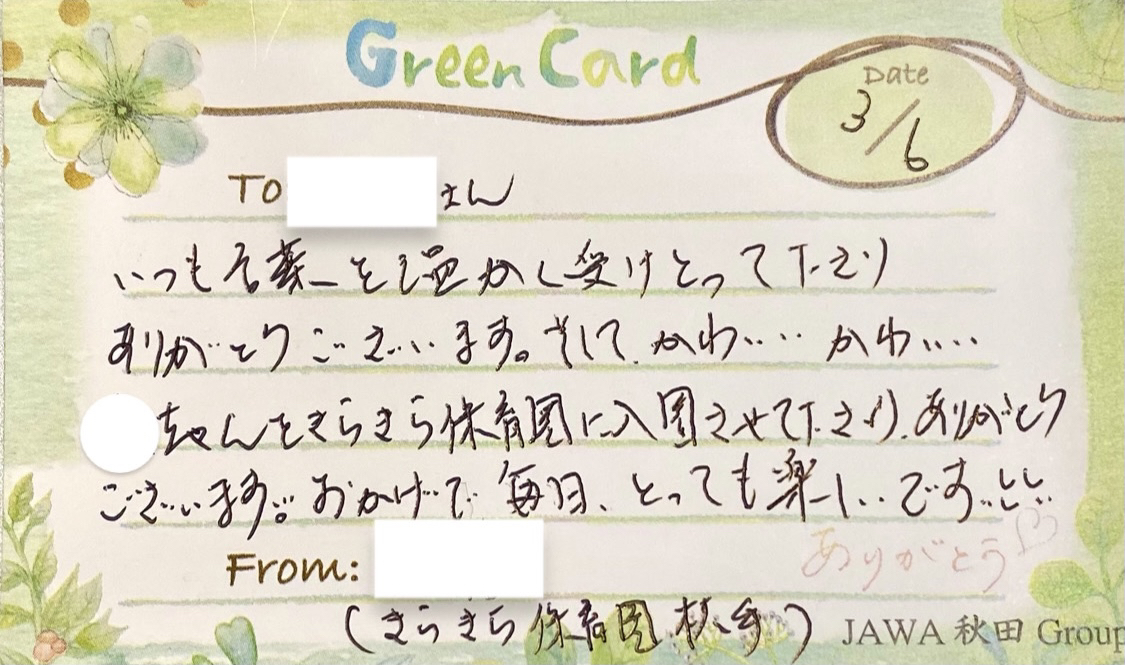 Green Card
Date
3/6
To さん
いつも言葉を温かく受けとって下さり
ありがとうございます。そして、かわ‥‥かわ‥‥
ちゃんをきらきら保育園に入園させて下さり、ありがとう
ございます!! おかげで、毎日、とっても楽しいです!!
ありがとう♡
From:
(きらきら保育園
JAWA 秋田 Group